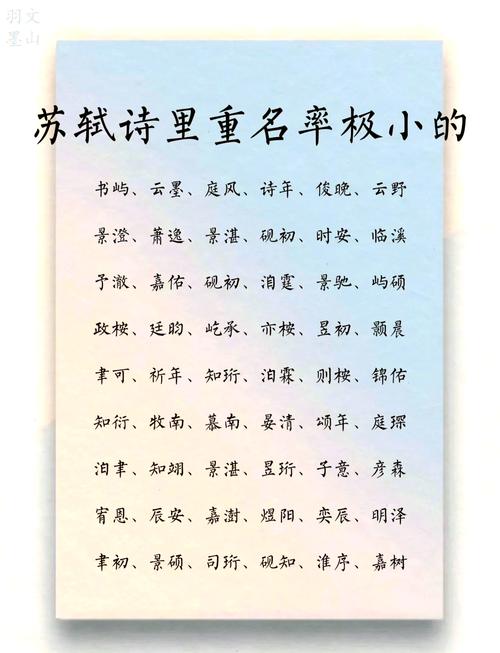 羽文
墨山
苏轼诗里重名率极小的
书屿、云墨、庭风、诗年、俊晚、云野
景澄、萧逸、景湛、砚初、时安、临溪
予澈、嘉佑、砚初、洎霆、景驰、屿硕
政桉、廷昀、屹承、亦桉、昱初、颢晨
聿可、祈年、知珩、泊霖、则桉、锦佑
知衍、牧南、慕南、晏清、颂年、庭琛
洎聿、知翊、景湛、昱珩、子意、彦森
宥恩、辰安、嘉澍、煜阳、奕辰、明泽
聿初、景硕、司珩、砚知、淮序、嘉树